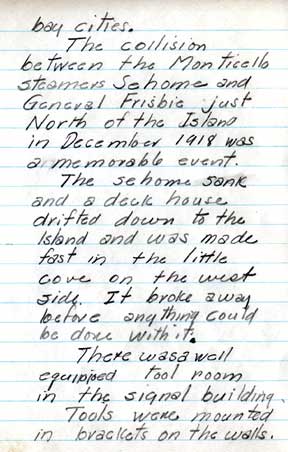 bay cities.
The collision
between the Monticello
steamers Sehome and
General Frisbie just
North of the Island
in December 1918 was
a memorable event.
The sehome sank
and a deck house
drifted down to the
Island and was made
fast in the little
cove on the west
side. It broke away
before anything could
be done with it.
There was a well
equipped tool room
in the signal building.
Tools were mounted
in brackets on the walls.